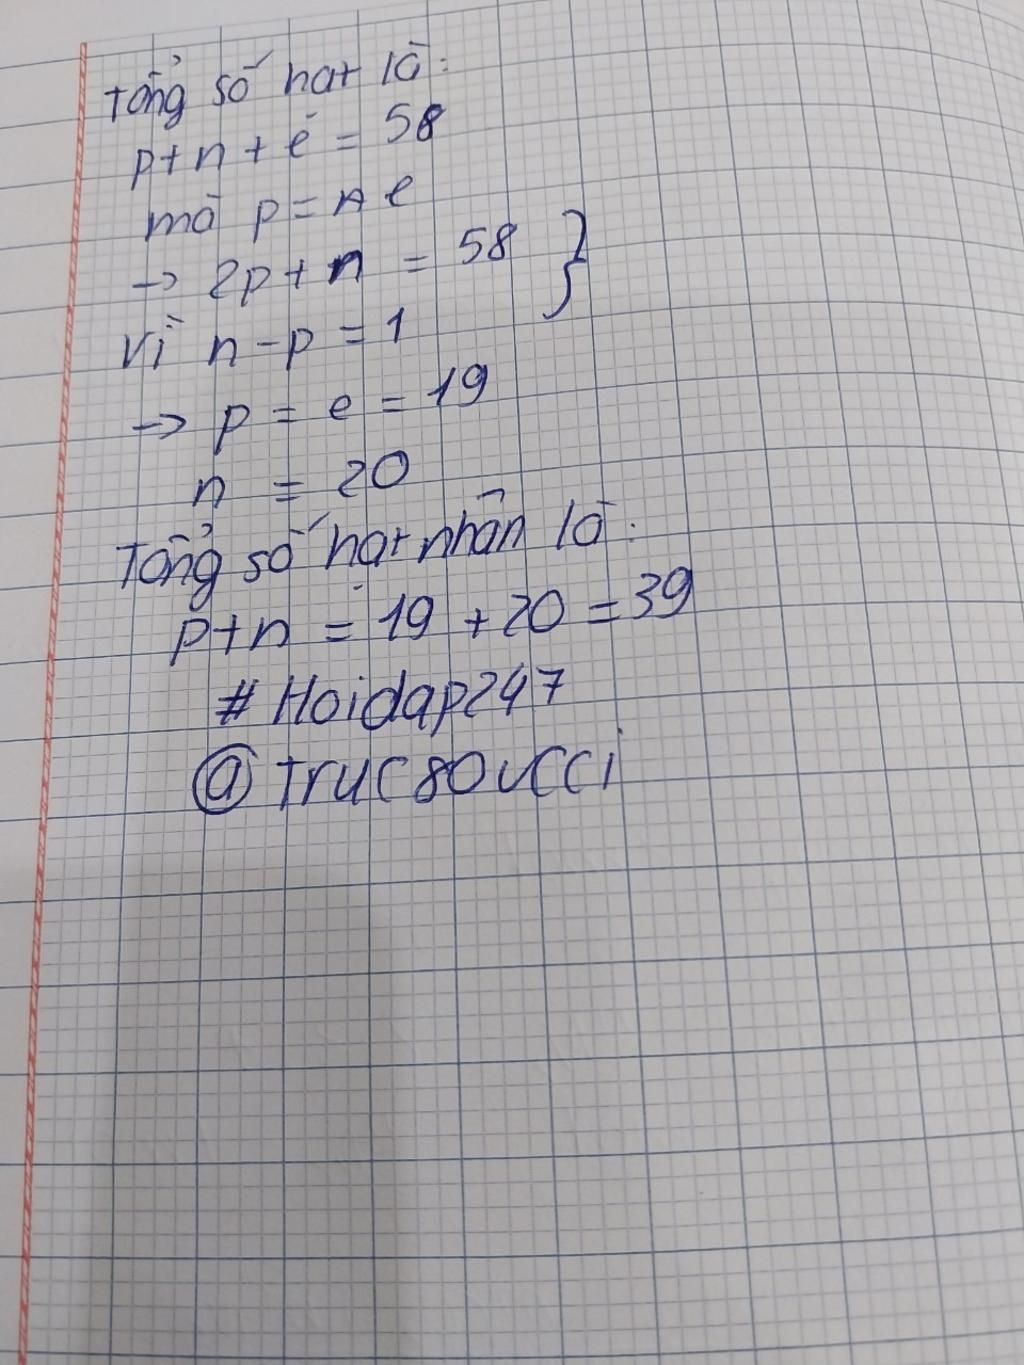 Tổng số hạt là:
p+n+e = 58
mà p = n e
→ 2p+n = 58
Vì n-p = 1
→ p = e = 19
n = 20
Tổng số hạt nhân là:
p+n = 19 + 20 = 39
# Hoidap247
@ truc80ucci